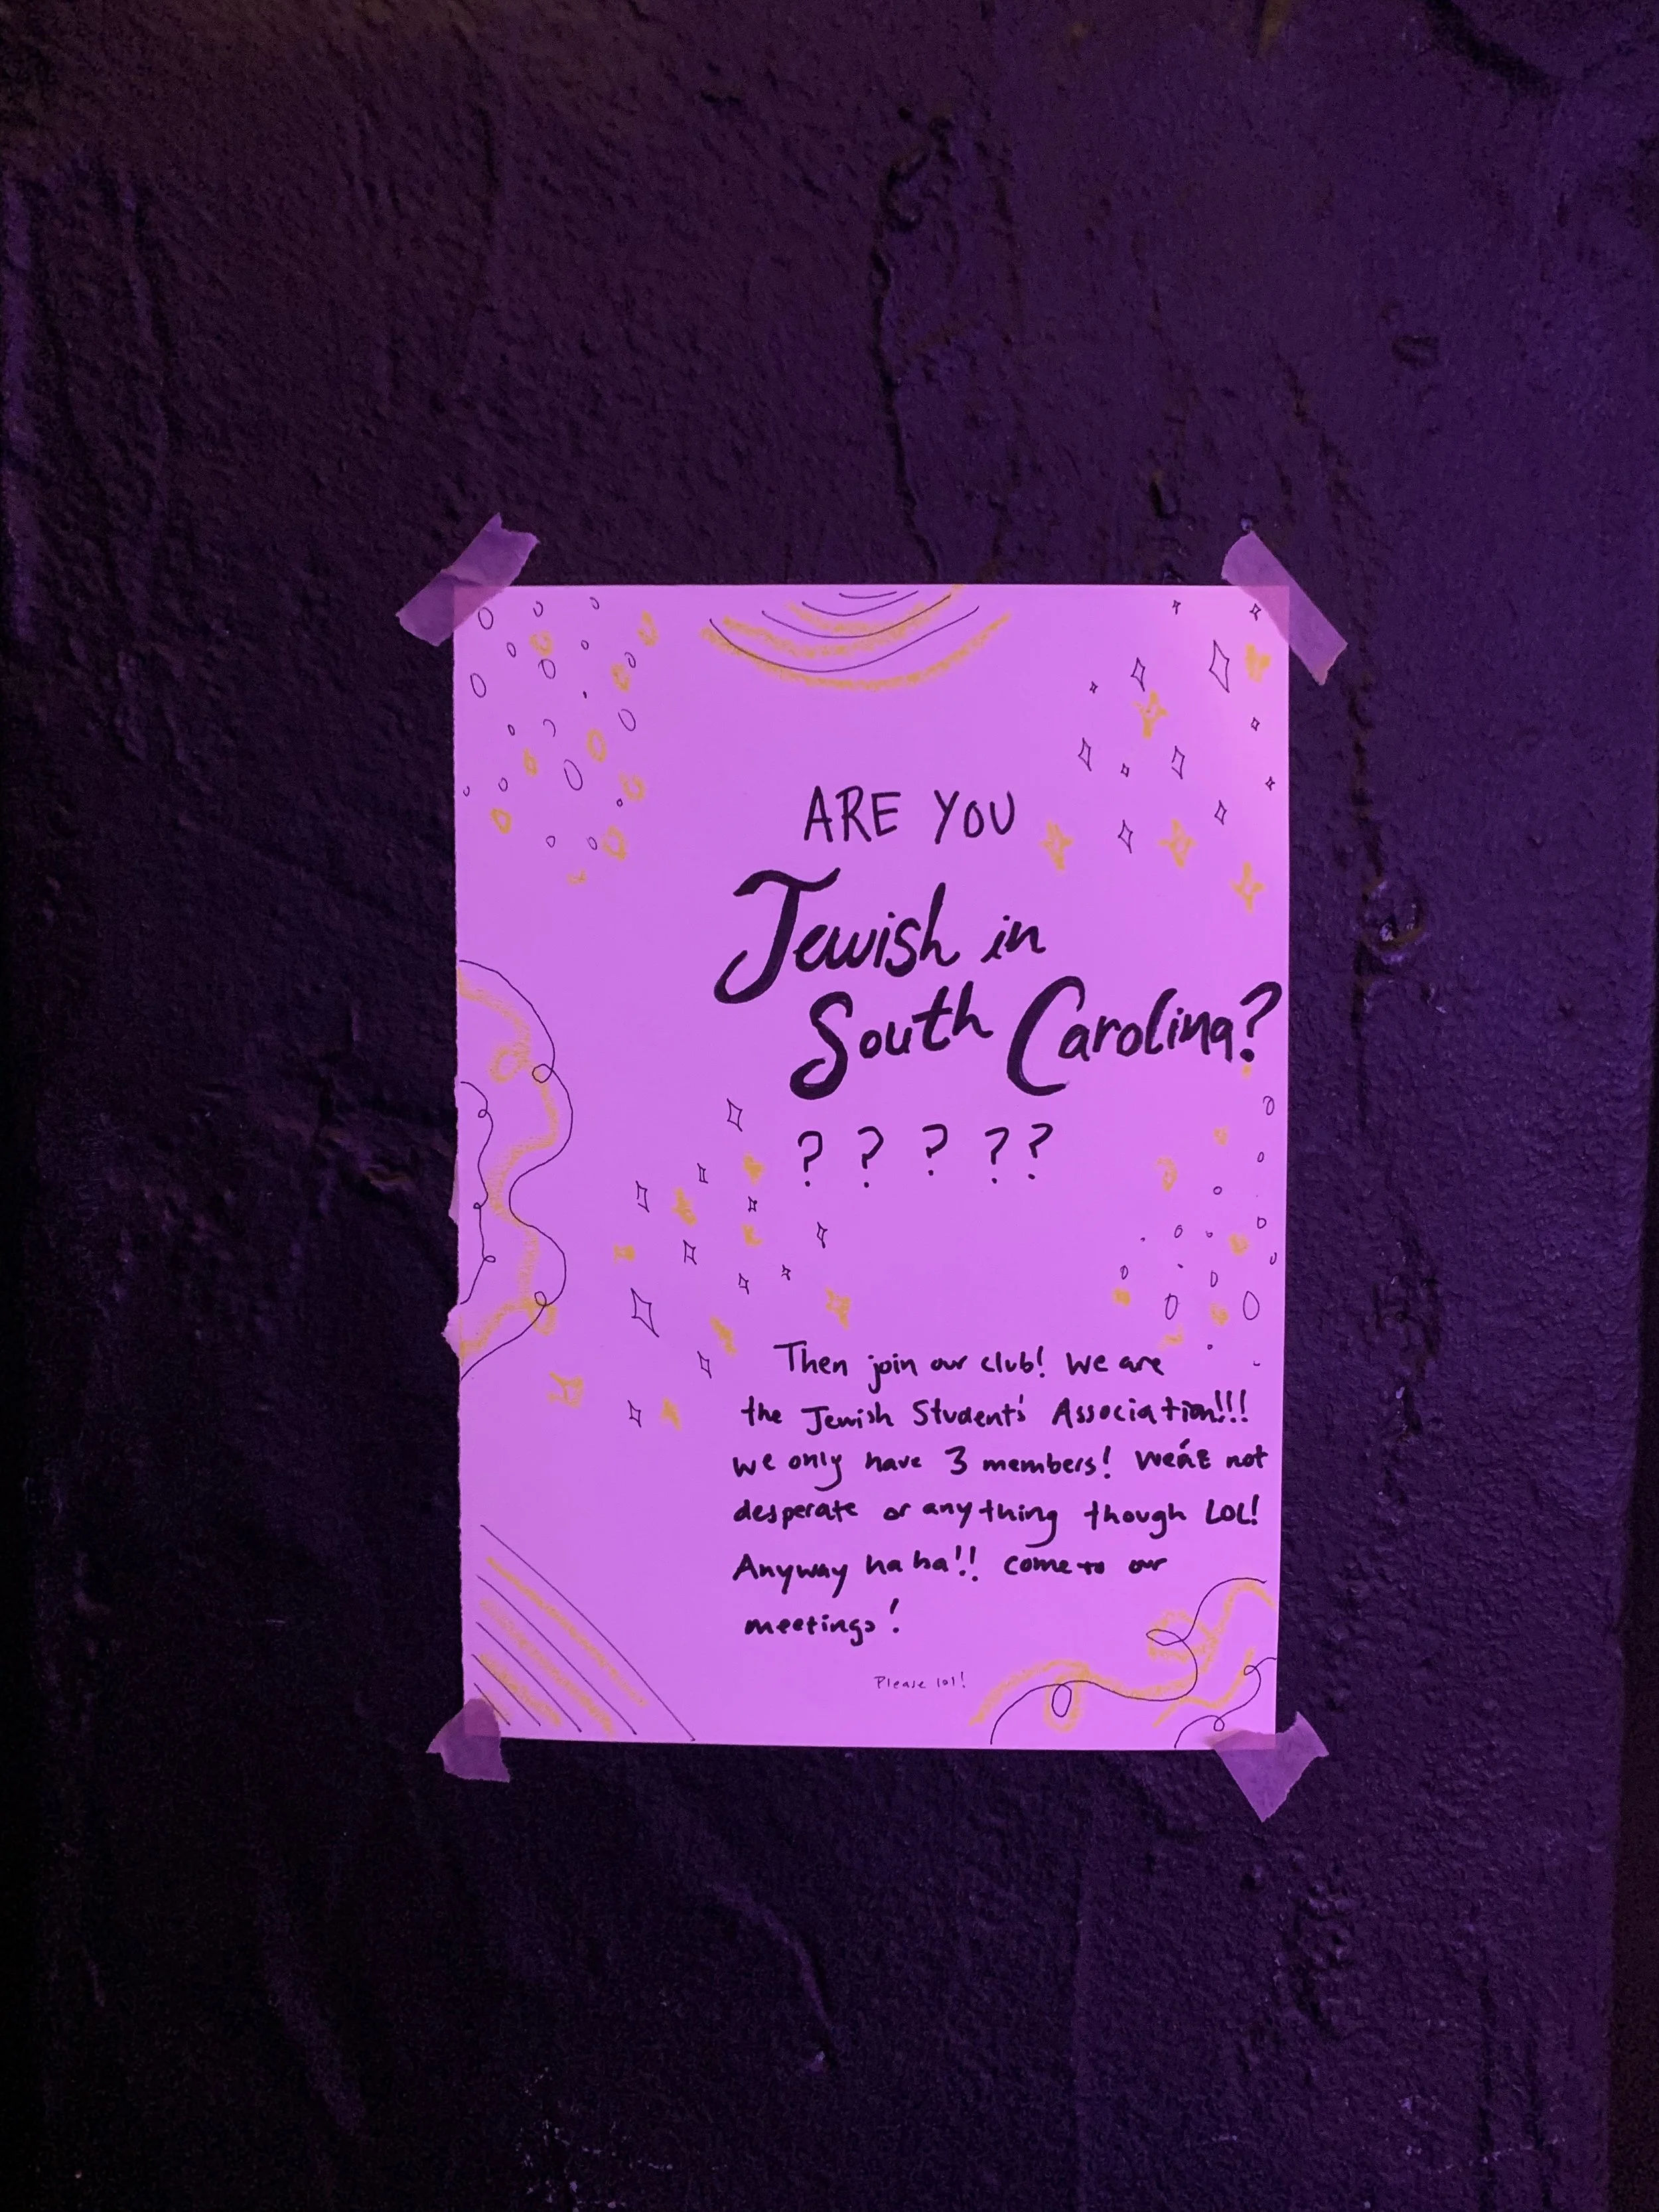 ARE YOU
Jewish in
South Carolina?
? ? ? ? ?
Then join our club! We are
the Jewish Students' Association!!!
We only have 3 members! We're not
desperate or anything though LOL!
Anyway ha ha!! come to our
meetings!
Please lol!